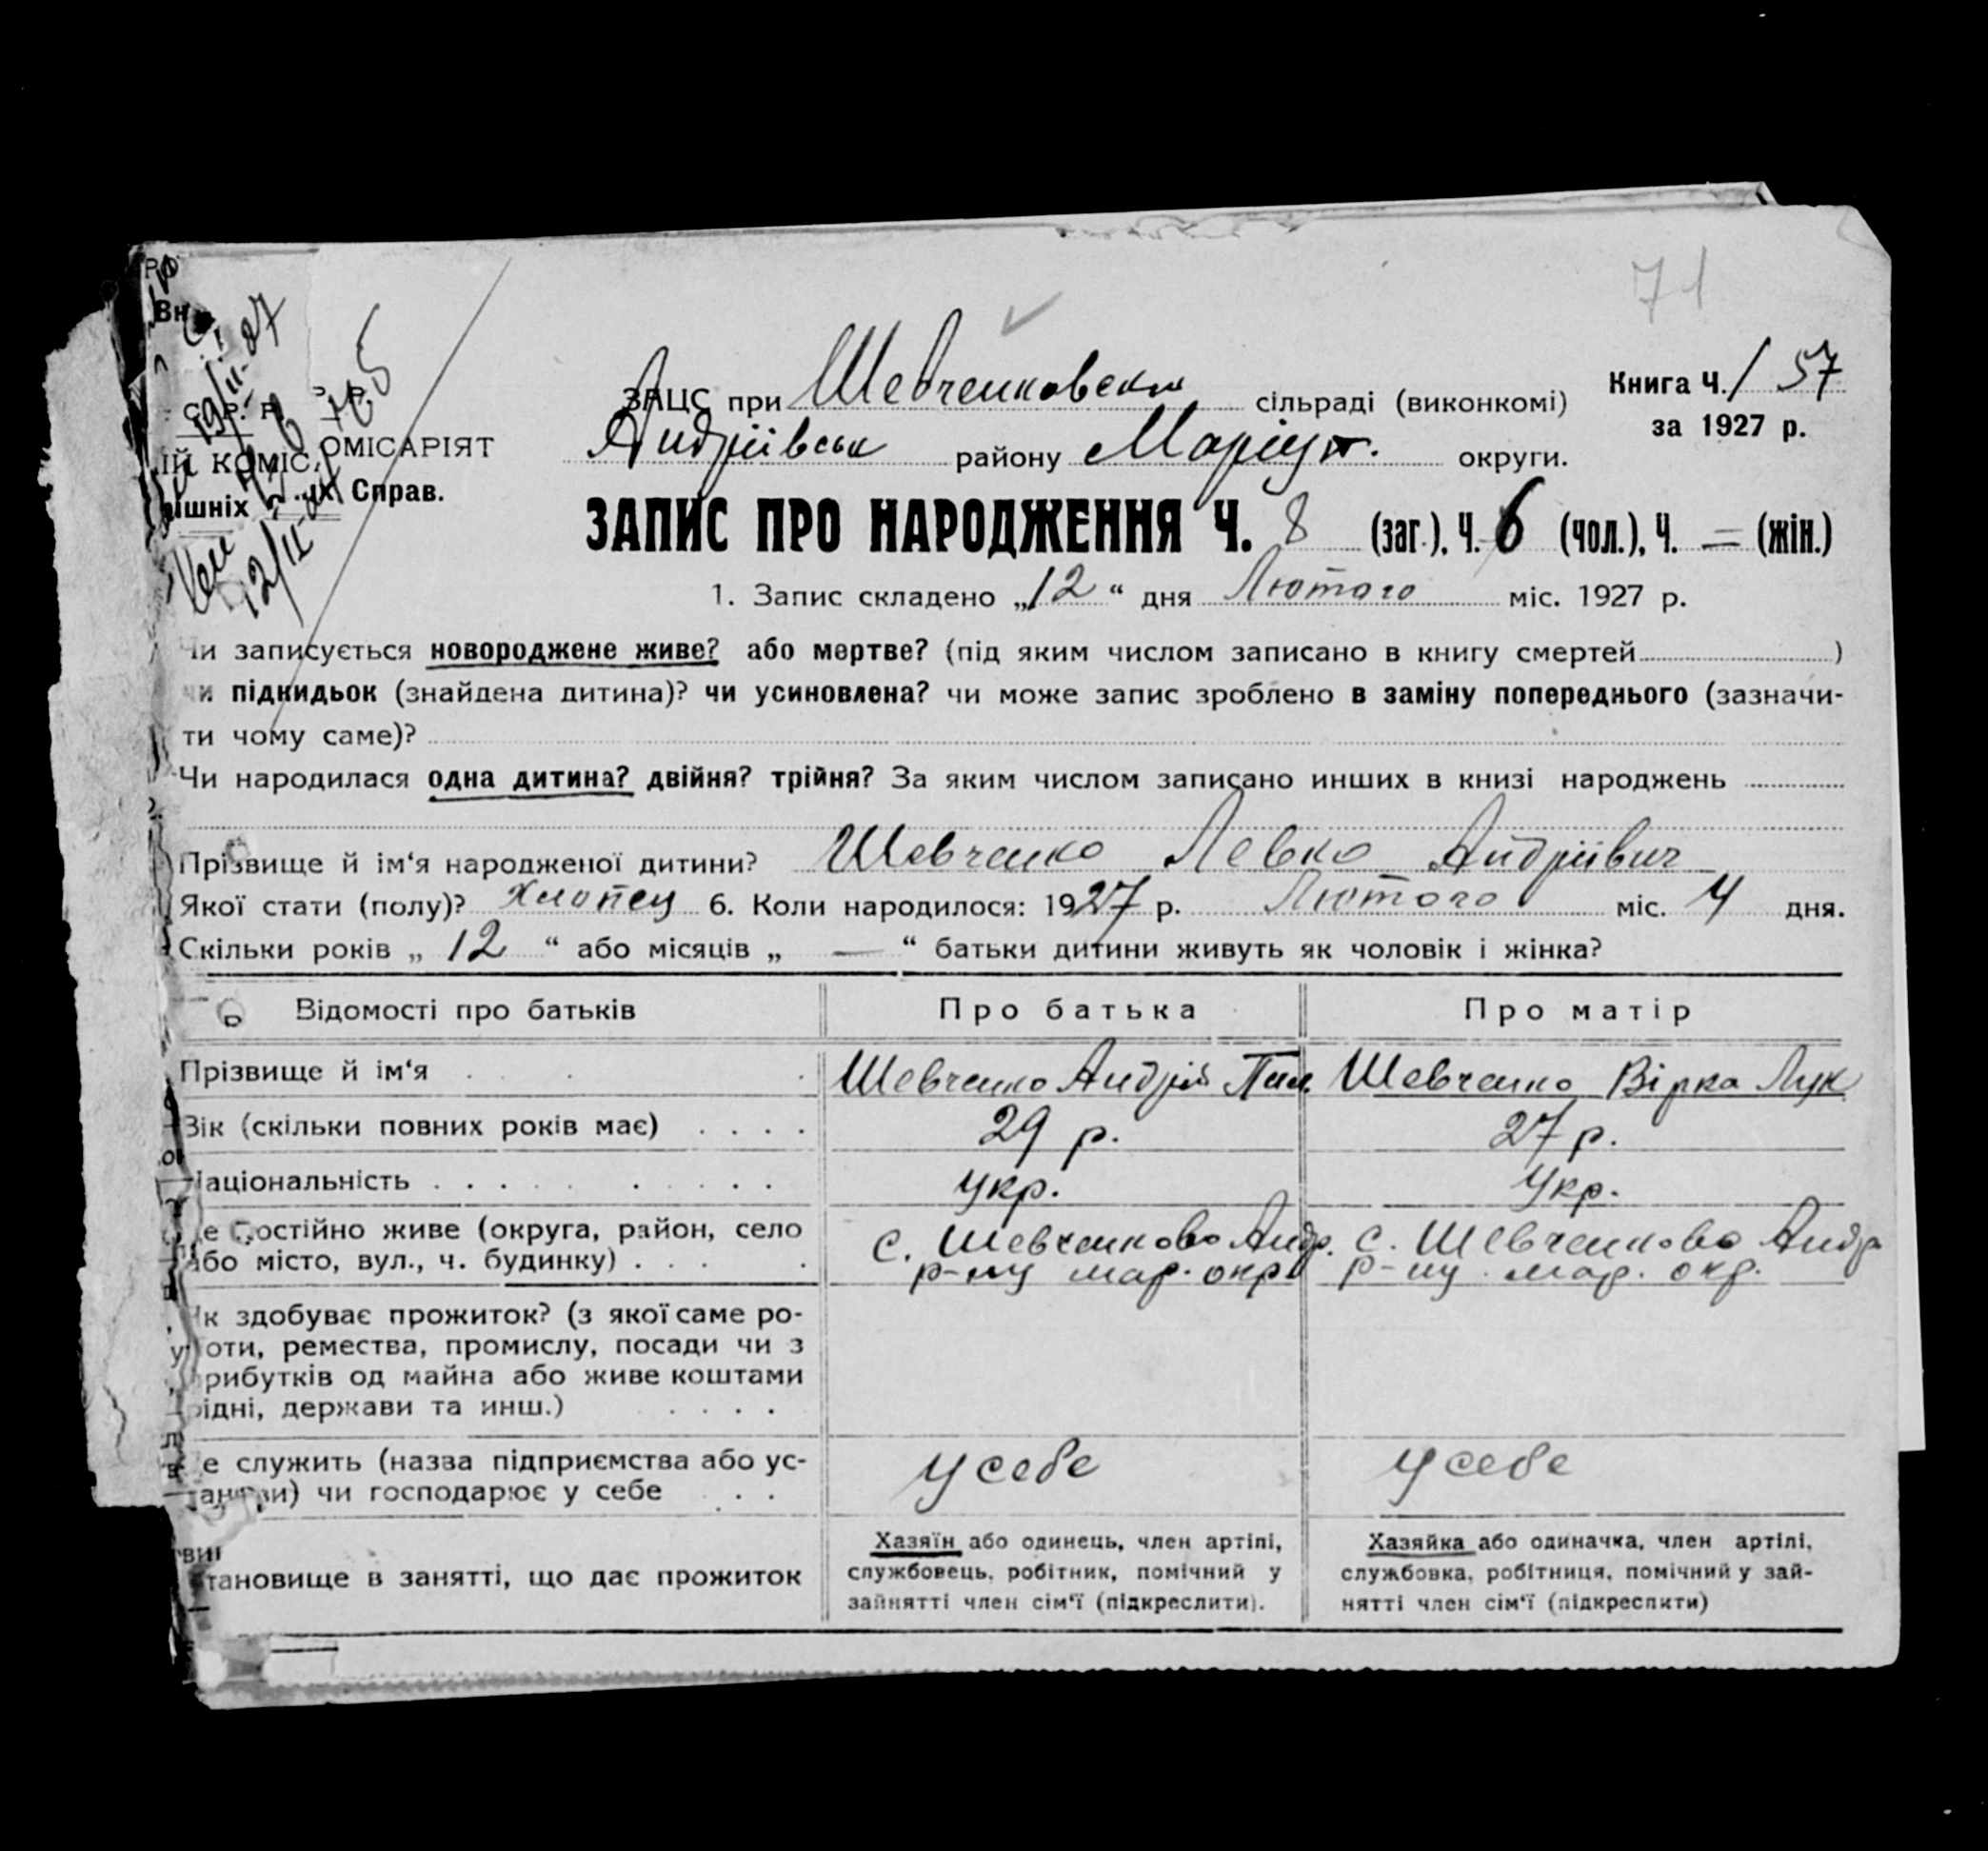 71
ЗАЦС при Шевченковськ сільраді (виконкомі)
Книга Ч. 1 57
за 1927 р.
Андріївськ району Маріуп. округи.
ОМІСАРІЯТ
ІЙ КОМІС.
ішніх Справ.
ЗАПИС ПРО НАРОДЖЕННЯ Ч. 8 (заг.), Ч. 6 (чол.), Ч. = (жін.)
1. Запис складено „12“ дня Лютого міс. 1927 р.
Чи записується новороджене живе? або мертве? (під яким числом записано в книгу смертей )
чи підкидьок (знайдена дитина)? чи усиновлена? чи може запис зроблено в заміну попереднього (зазначи-
ти чому саме)?
Чи народилася одна дитина? двійня? трійня? За яким числом записано инших в книзі народжень
Прізвище й ім‘я народженої дитини? Шевченко Левко Андріївич
Якої стати (полу)? Хлопец 6. Коли народилося: 1927 р. Лютого міс. 4 дня.
Скільки років „ 12 “ або місяців „ — “ батьки дитини живуть як чоловік і жінка?
Відомості про батьків Про батька Про матір
Прізвище й ім‘я Шевченко Андрій Пил. Шевченко Вірка Лук
Вік (скільки повних років має) 29 р. 27 р.
Національність укр. Укр.
Де постійно живе (округа, район, село с. Шевченково Андр. с. Шевченково Андр
або місто, вул., ч. будинку) р-ну мар. окр р-ну мар. окр.
Як здобуває прожиток? (з якої саме ро-
оти, ремества, промислу, посади чи з
рибутків од майна або живе коштами
рідні, держави та инш.)
Де служить (назва підприємства або ус- у себе у себе
танови) чи господарює у себе
Хазяїн або одинець, член артілі, Хазяйка або одиначка, член артілі,
тановище в занятті, що дає прожиток службовець, робітник, помічний у службовка, робітниця, помічний у зай-
зайнятті член сім‘ї (підкреслити). нятті член сім‘ї (підкреслити)